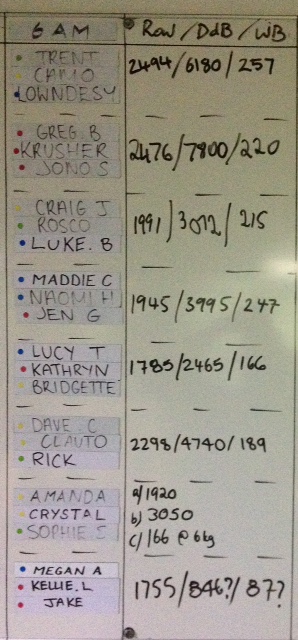 6 AM Row / DdB / WB
TRENT
CAMO
LOWNDESY
2494/6180/257
GREG.B
KRUSHER
JONO S
2476/7800/220
CRAIG J
ROSCO
LUKE.B
1991/3072/215
MADDIE C
NAOMI H
JEN G
1945/3995/247
LUCY T
KATHRYN
BRIDGETTE
1785/2465/166
DAVE C
CLAUTO
RICK
2298/4740/189
AMANDA
CRYSTAL
SOPHIE S
a/1920
b) 3050
c/166 @ 6kg
MEGAN A
KELLIE.L
JAKE
1755/846?/87?